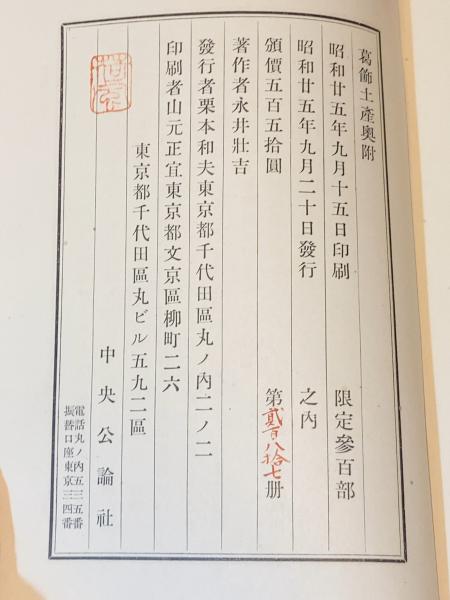 葛飾土產奧附
昭和廿五年九月十五日印刷 限定參百部
昭和廿五年九月二十日發行 之內
頒價五百五拾圓 第貳百八拾七册
著作者永井壯吉
發行者栗本和夫東京都千代田區丸ノ內二ノ二
印刷者山元正宜東京都文京區柳町二六
東京都千代田區丸ビル五九二區
中央公論社
電話丸ノ內五三五番
振替口座東京三四番